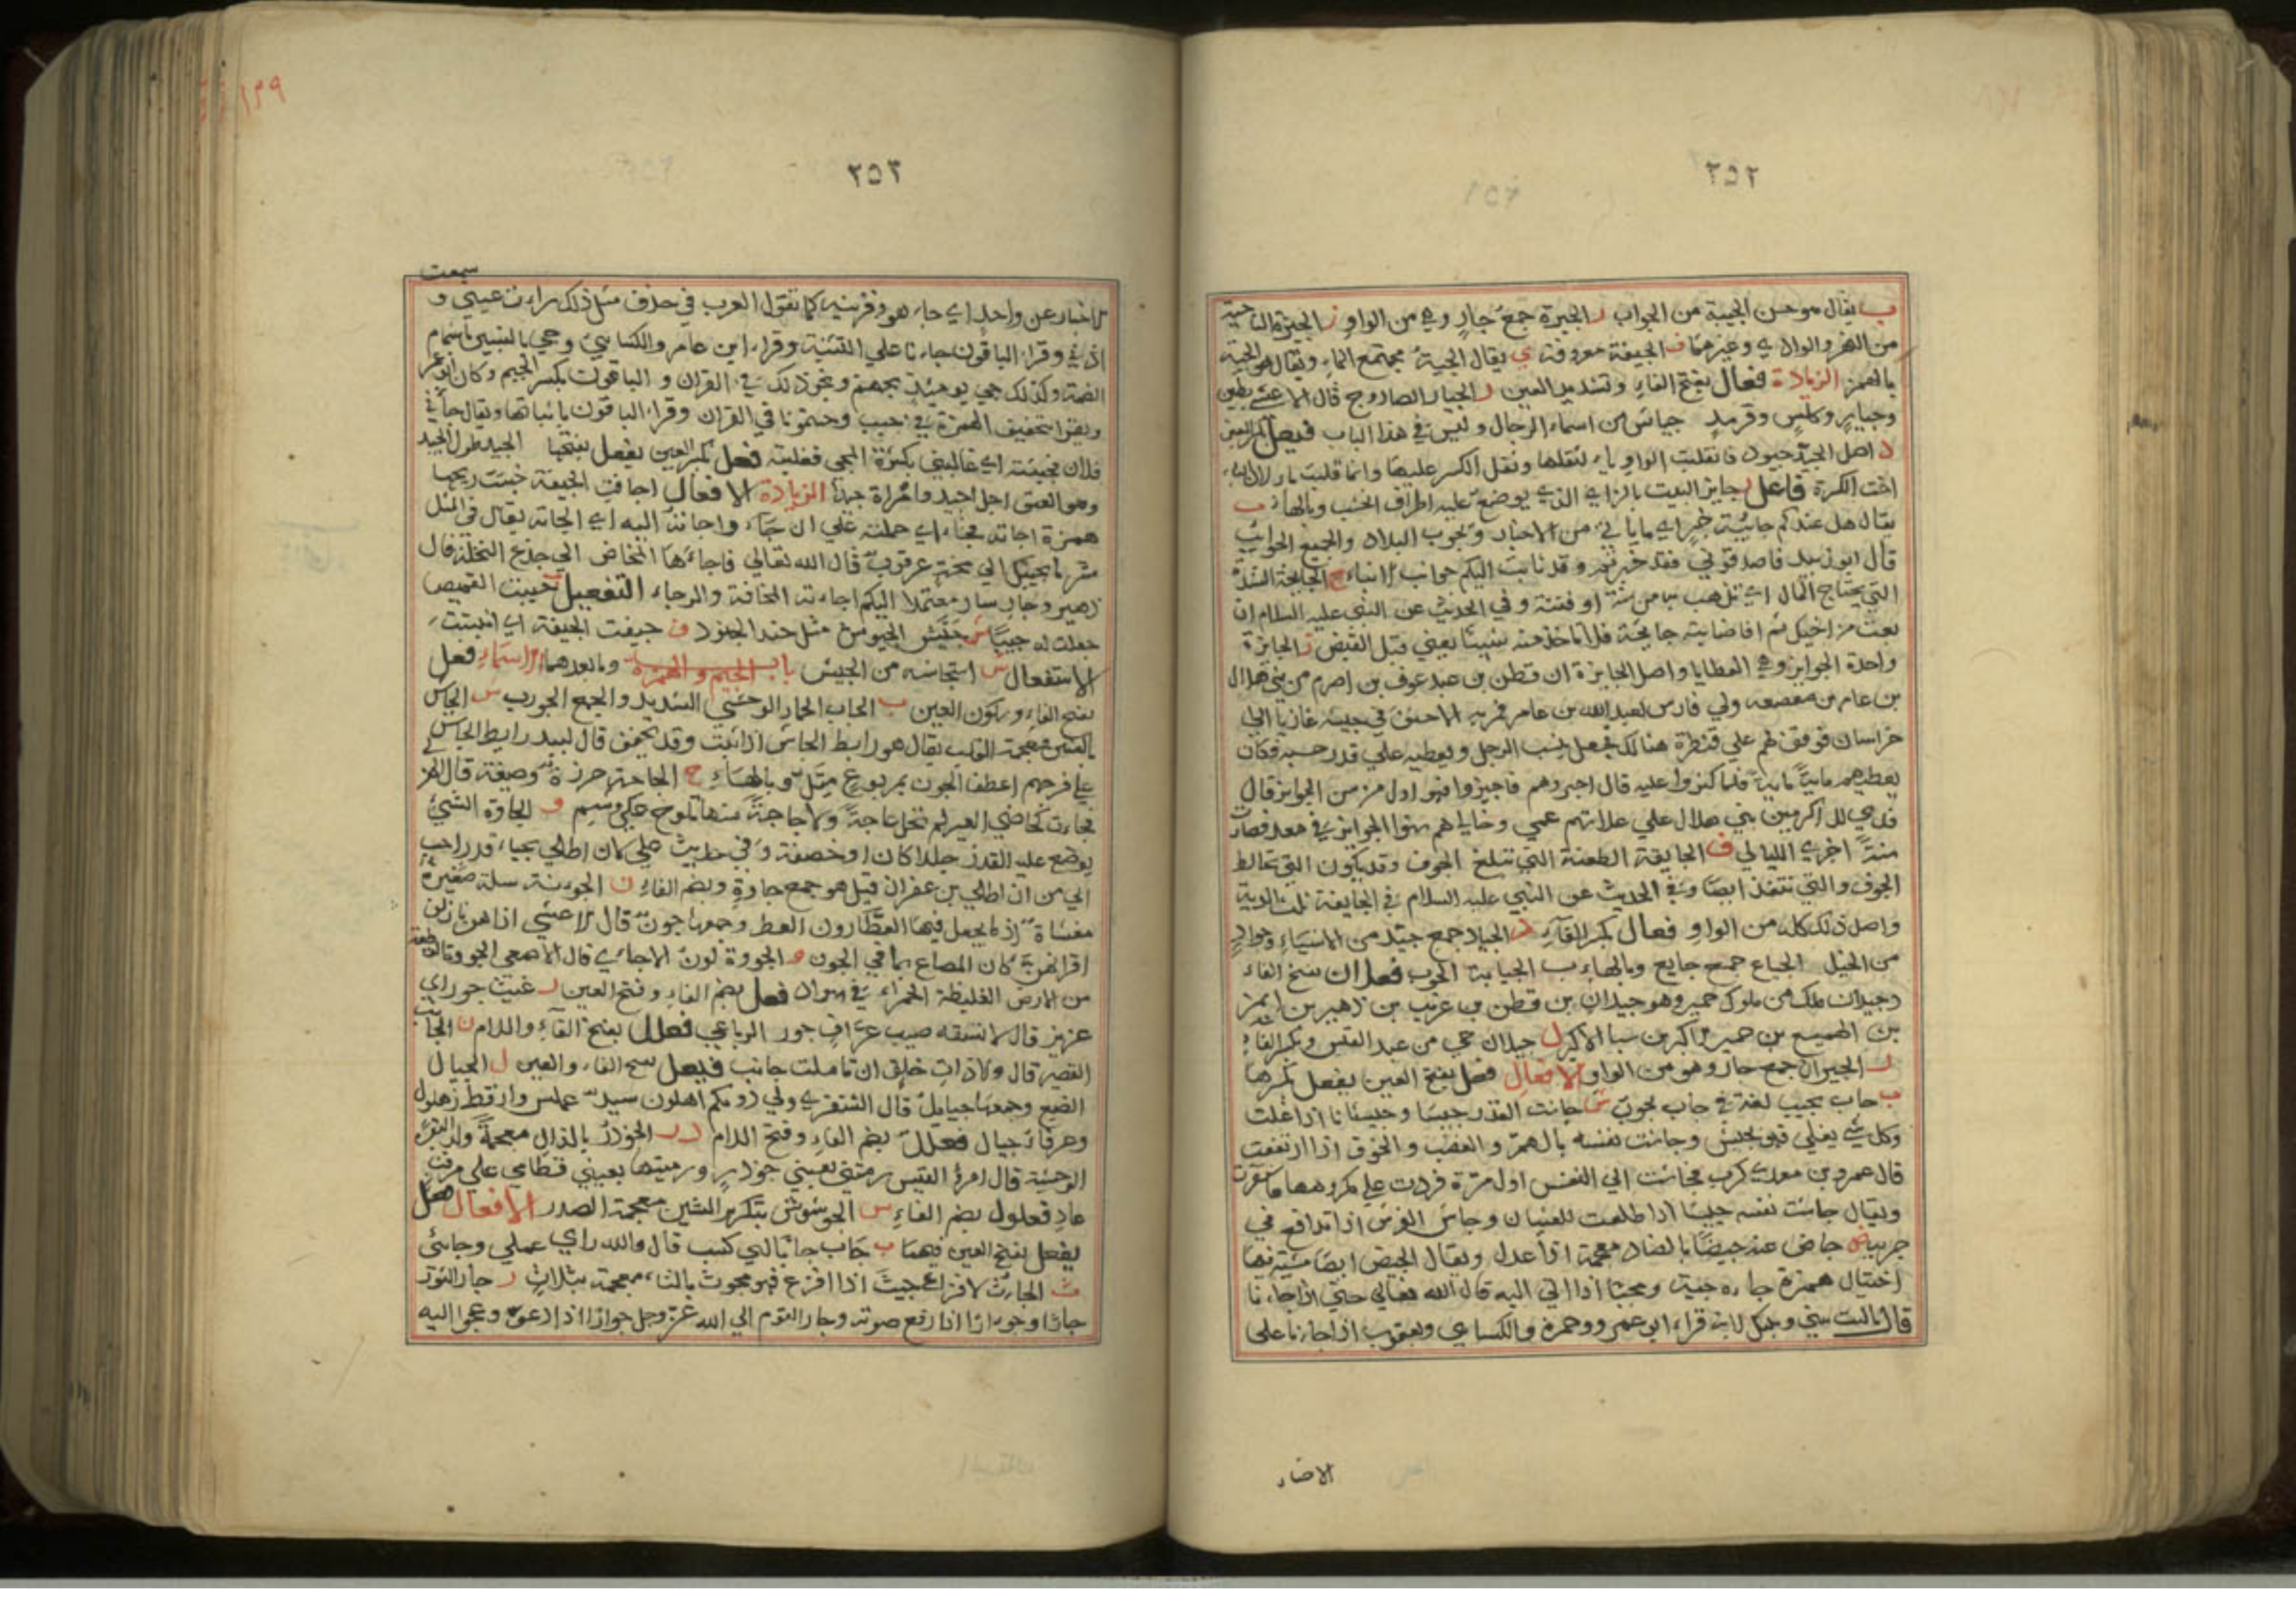 ٢٥٢
ب يقال هو حسن الجيبة من الجواب ر الجيرة جمع جار وهي من الواو ز الجيزة الناحية
من النهر والوادي وغيرهما ف الجيفة معروفة ي يقال الجية مجتمع الماء ويقال هي الجيئة
بالهمز الزيادة فعال بفتح الفاء وتشديد العين ر الجيار الصاروج قال الاعشى بطين
وجيار وكلس وقرمد جياش من اسماء الرجال وليس في هذا الباب فيعل بكسر العين
د اصل الجيد جيود فانقلبت الواو ياء لثقلها وثقل الكسر عليها وانما قلبت ياء لان الياء
اخت الكسرة فاعل ز جايز البيت بالزاي الذي يوضع عليه اطراف الخشب وبالهاء ب
يقال هل عندكم جايبة خبر اي ما ياتي من الاخبار وتجوب البلاد والجميع الجوايب
قال ابو زبيد فاصدقوني فقد خبرتم وقد ثابت اليكم جوايب الانباء ح الجايحة الشدة
التي تجتاح المال اي تذهب به من سنة او فتنة وفي الحديث عن النبي عليه السلام ان
بعت من اخيك ثم اصابته جايحة فلا تاخذ منه شيئا يعني قبل القبض ز الجايزة
واحدة الجوايز وهي العطايا واصل الجايزة ان قطن بن عبد عوف بن اصرم من بني هلال
بن عامر بن صعصعة ولي فارس لعبد الله بن عامر فمر به الاحنف في جيشه غازيا الى
خراسان فوقف لهم على قنطرة هنالك فجعل ينسب الرجل ويعطيه على قدر حسبه فكان
يعطيهم ماية ماية فلما كثروا عليه قال اجيزوهم فاجيزوا فهو اول من سن الجوايز قال
فدى للاكرمين بني هلال على علاتهم عمي وخالي هم سنوا الجوايز في معد فصارت
سنة اخرى الليالي ف الجايفة الطعنة التي تبلغ الجوف وقد يكون التي تخالط
الجوف والتي تنفذ ايضا وفي الحديث عن النبي عليه السلام في الجايفة ثلث الدية
واصل ذلك كله من الواو فعال بكسر الفاء د الجياد جمع جيد من الاشياء وجواد
من الخيل الجياع جمع جايع وبالهاء ب الجيابة الجوب فعلان بفتح الفاء
د جيدان ملك من ملوك حمير وهو جيدان بن قطن بن عريب بن زهير بن ايمن
بن الهميسع بن حمير الاكبر بن سبا الاكبر ل جيلان حي من عبد القيس وبكسر الفاء
ر الجيران جمع جار وهو من الواو الافعال فعل بفتح العين يفعل بكسرها
ب جاب يجيب لغة في جاب يجوب ش جاشت القدر جيشا وجيشانا اذا غلت
وكل شي يغلي فهو يجيش وجاشت نفسه بالهم والغضب والخوف اذا ارتفعت
قال عمرو بن معدي كرب فجاشت الي النفس اول مرة فردت على مكروهها فاستقرت
ويقال جاشت نفسه جيشا اذا طلعت للغثيان وجاش الفرس اذا تدافع في
جريه ض جاض عنه جيضا بالضاد معجمة اذا عدل ويقال الجيض ايضا مشية فيها
اختيال همزة جاءه جيئة ومجيئا اذا اتى اليه قال الله تعالى حتى اذا جاءنا
قال ياليت بيني وبينك لابن قراءة ابو عمرو وحمزة والكسائي ويعقوب اذا جاءنا على
الاخبار
١٣٩
٢٥٣
الاخبار عن واحد اي جاء هو وقرينه كما تقول العرب في حذف مثل ذلك رات عيني و سمعت
اذني وقراء الباقون جاءنا على التثنية وقراء ابن عامر والكسائي وجي بالنبيين باشمام
الضمة وكذلك جي يومئذ بجهنم ونحو ذلك في القران والباقون بكسر الجيم وكان ابو عمرو
يقرا بتخفيف الهمزة في جيت وجيتمونا في القران وقراء الباقون باثباتها ويقال جاءني
فلان فجيئته اي غالبني بكثرة المجي فغلبته فعل بكسر العين يفعل بفتحها الجيد طول الجيد
وهو العنق رجل اجيد وامراة جيدا الزيادة الافعال اجافت الجيفة خبثت ريحها
همزة اجاءته فجاء اي حملته على ان جاء واجاءته اليه اي الجاته يقال في المثل
شر ما يجيئك الى مخة عرقوب قال الله تعالى فاجاءها المخاض الى جذع النخلة قال
زهير وجار سار معتمدا اليكم اجاءته المخافة والرجاء التفعيل ب جيبت القميص
جعلت له جيبا ش جيش الجيوش مثل جند الجنود ف جيفت الجيفة اي انتنت
الاستفعال ش استجاشه من الجيش باب الجيم والهمزة وما بعدهما الاسماء فعل
بفتح الفاء وسكون العين ب الجاب الحمار الوحشي الشديد والجمع الجووب ش الجاش
بالشين معجمة القلب يقال هو رابط الجاش اذا ثبت وقد يخفف قال لبيد رابط الجاش
على فرجهم اعطف الجون بمربوع متل وبالهاء ج الجاجة خرزة وضيعة قال الهذلي
فجاءت كخاصي العير لم تحل عاجة ولا جاجة منها تلوح على وشم و الجاوة الشي
يوضع عليه القدر جلدا كان او خصفة وفي حديث علي لان اطلي بجياء قدر احب
الي من ان اطلي بزعفران قيل هو جمع جاوة وبضم الفاء ن الجونة سلة صغيرة
مغشاة ادما يجعل فيها العطارون العطر وجمعها جون قال الاعشى اذا هن نازلن
اقرانهن كان المصاع بما في الجون و الجووة لون الاجاي قال الاصمعي الجووة قطعة
من الارض الغليظة الحمراء في سواد فعل بضم الفاء وفتح العين ر غيث جور اي
عزيز قال لا تسقه صيب عزاف جور الرباعي فعلل بفتح الفاء واللام ن الجانب
القصير قال ولا ذات خلق ان تاملت جانب فيعل بفتح الفاء والعين ل الجيال
الضبع وجمعها جيايل قال الشنفرى ولي دونكم اهلون سيد عملس وارقط زهلول
وعرفاء جيال فعلل بضم الفاء وفتح اللام ذر الجوذر بالذال معجمة ولد البقرة
الوحشية قال امرؤ القيس رمتني بعيني جوذر ورميتها بعيني قطامي على مرقب
عاد فعلول بضم الفاء ش الجوشوش بتكرير الشين معجمة الصدر الافعال فعل
يفعل بفتح العين فيهما ب جاب جابا اي كسب قال والله راي عملي وجابي
ث الجاث الافزاع جيث اذا افزع فهو مجوث بالثاء معجمة بثلاث ر جار الثور
جارا وجوارا اذا رفع صوته وجار القوم الى الله عز وجل جوارا اذا دعوه وعجوا اليه